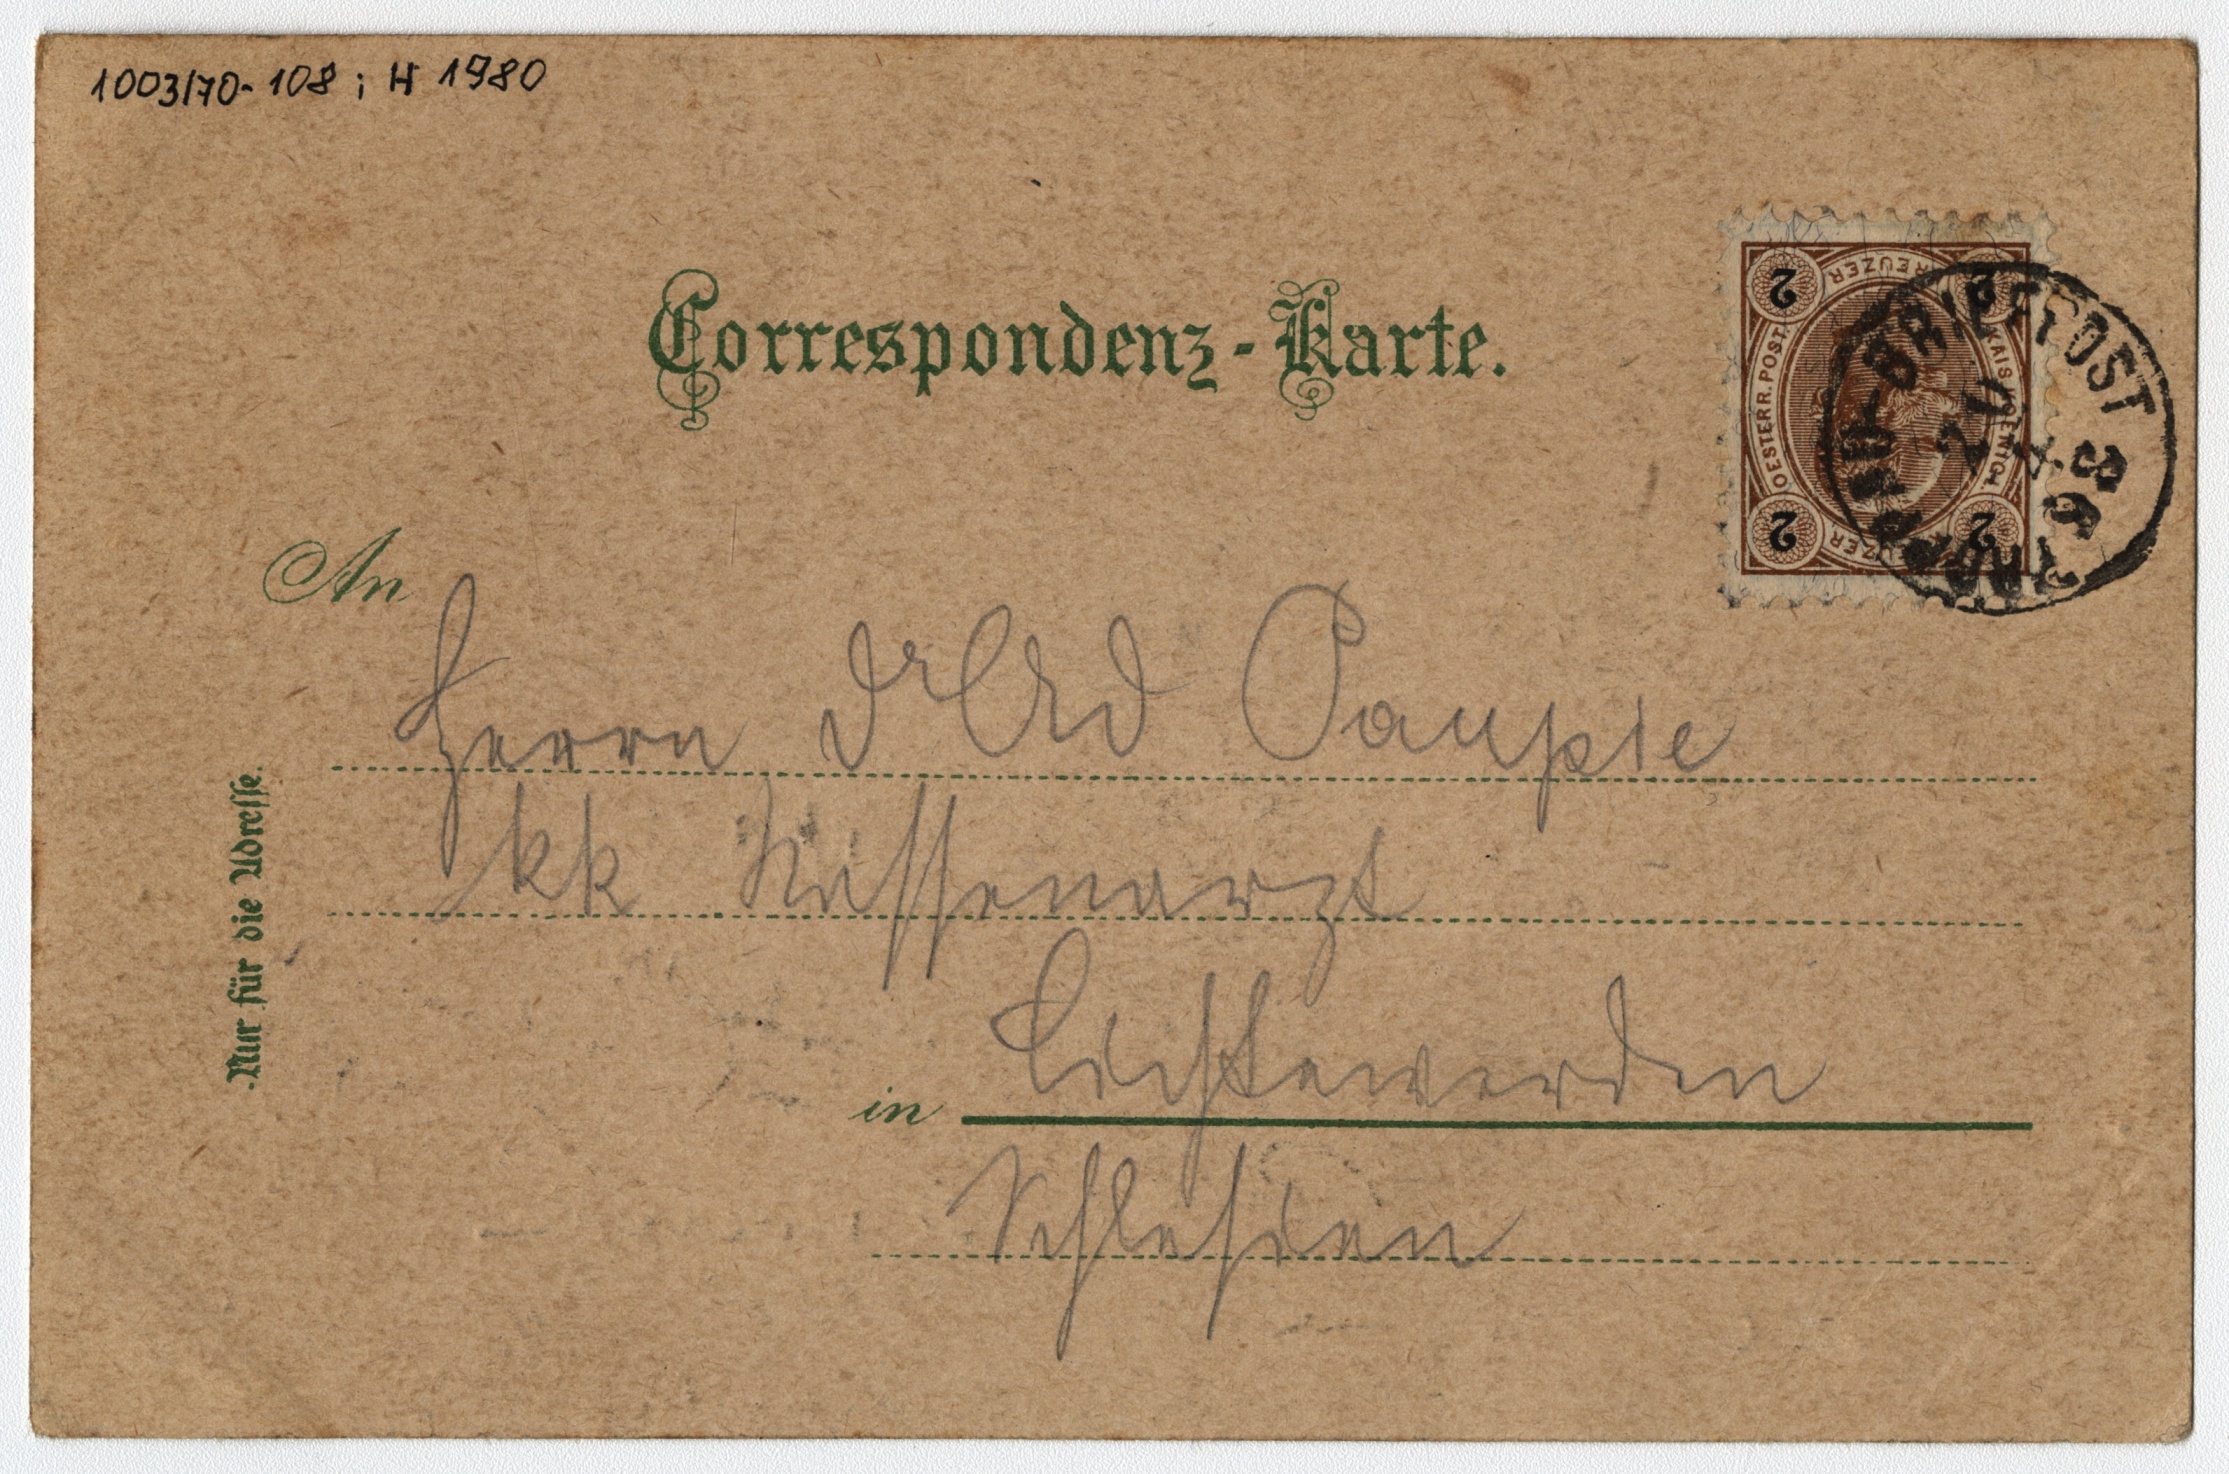 1003/70-108; H 1980
Correspondenz-Karte.
2 KREUZER 2
OESTERR. POST.
2 KREUZER 2
BRIEFPOST
98
An
Herrn Dr Ed Paupie
kk Kassenarzt
in Lichtewerden
Schlesien
Nur für die Adresse.